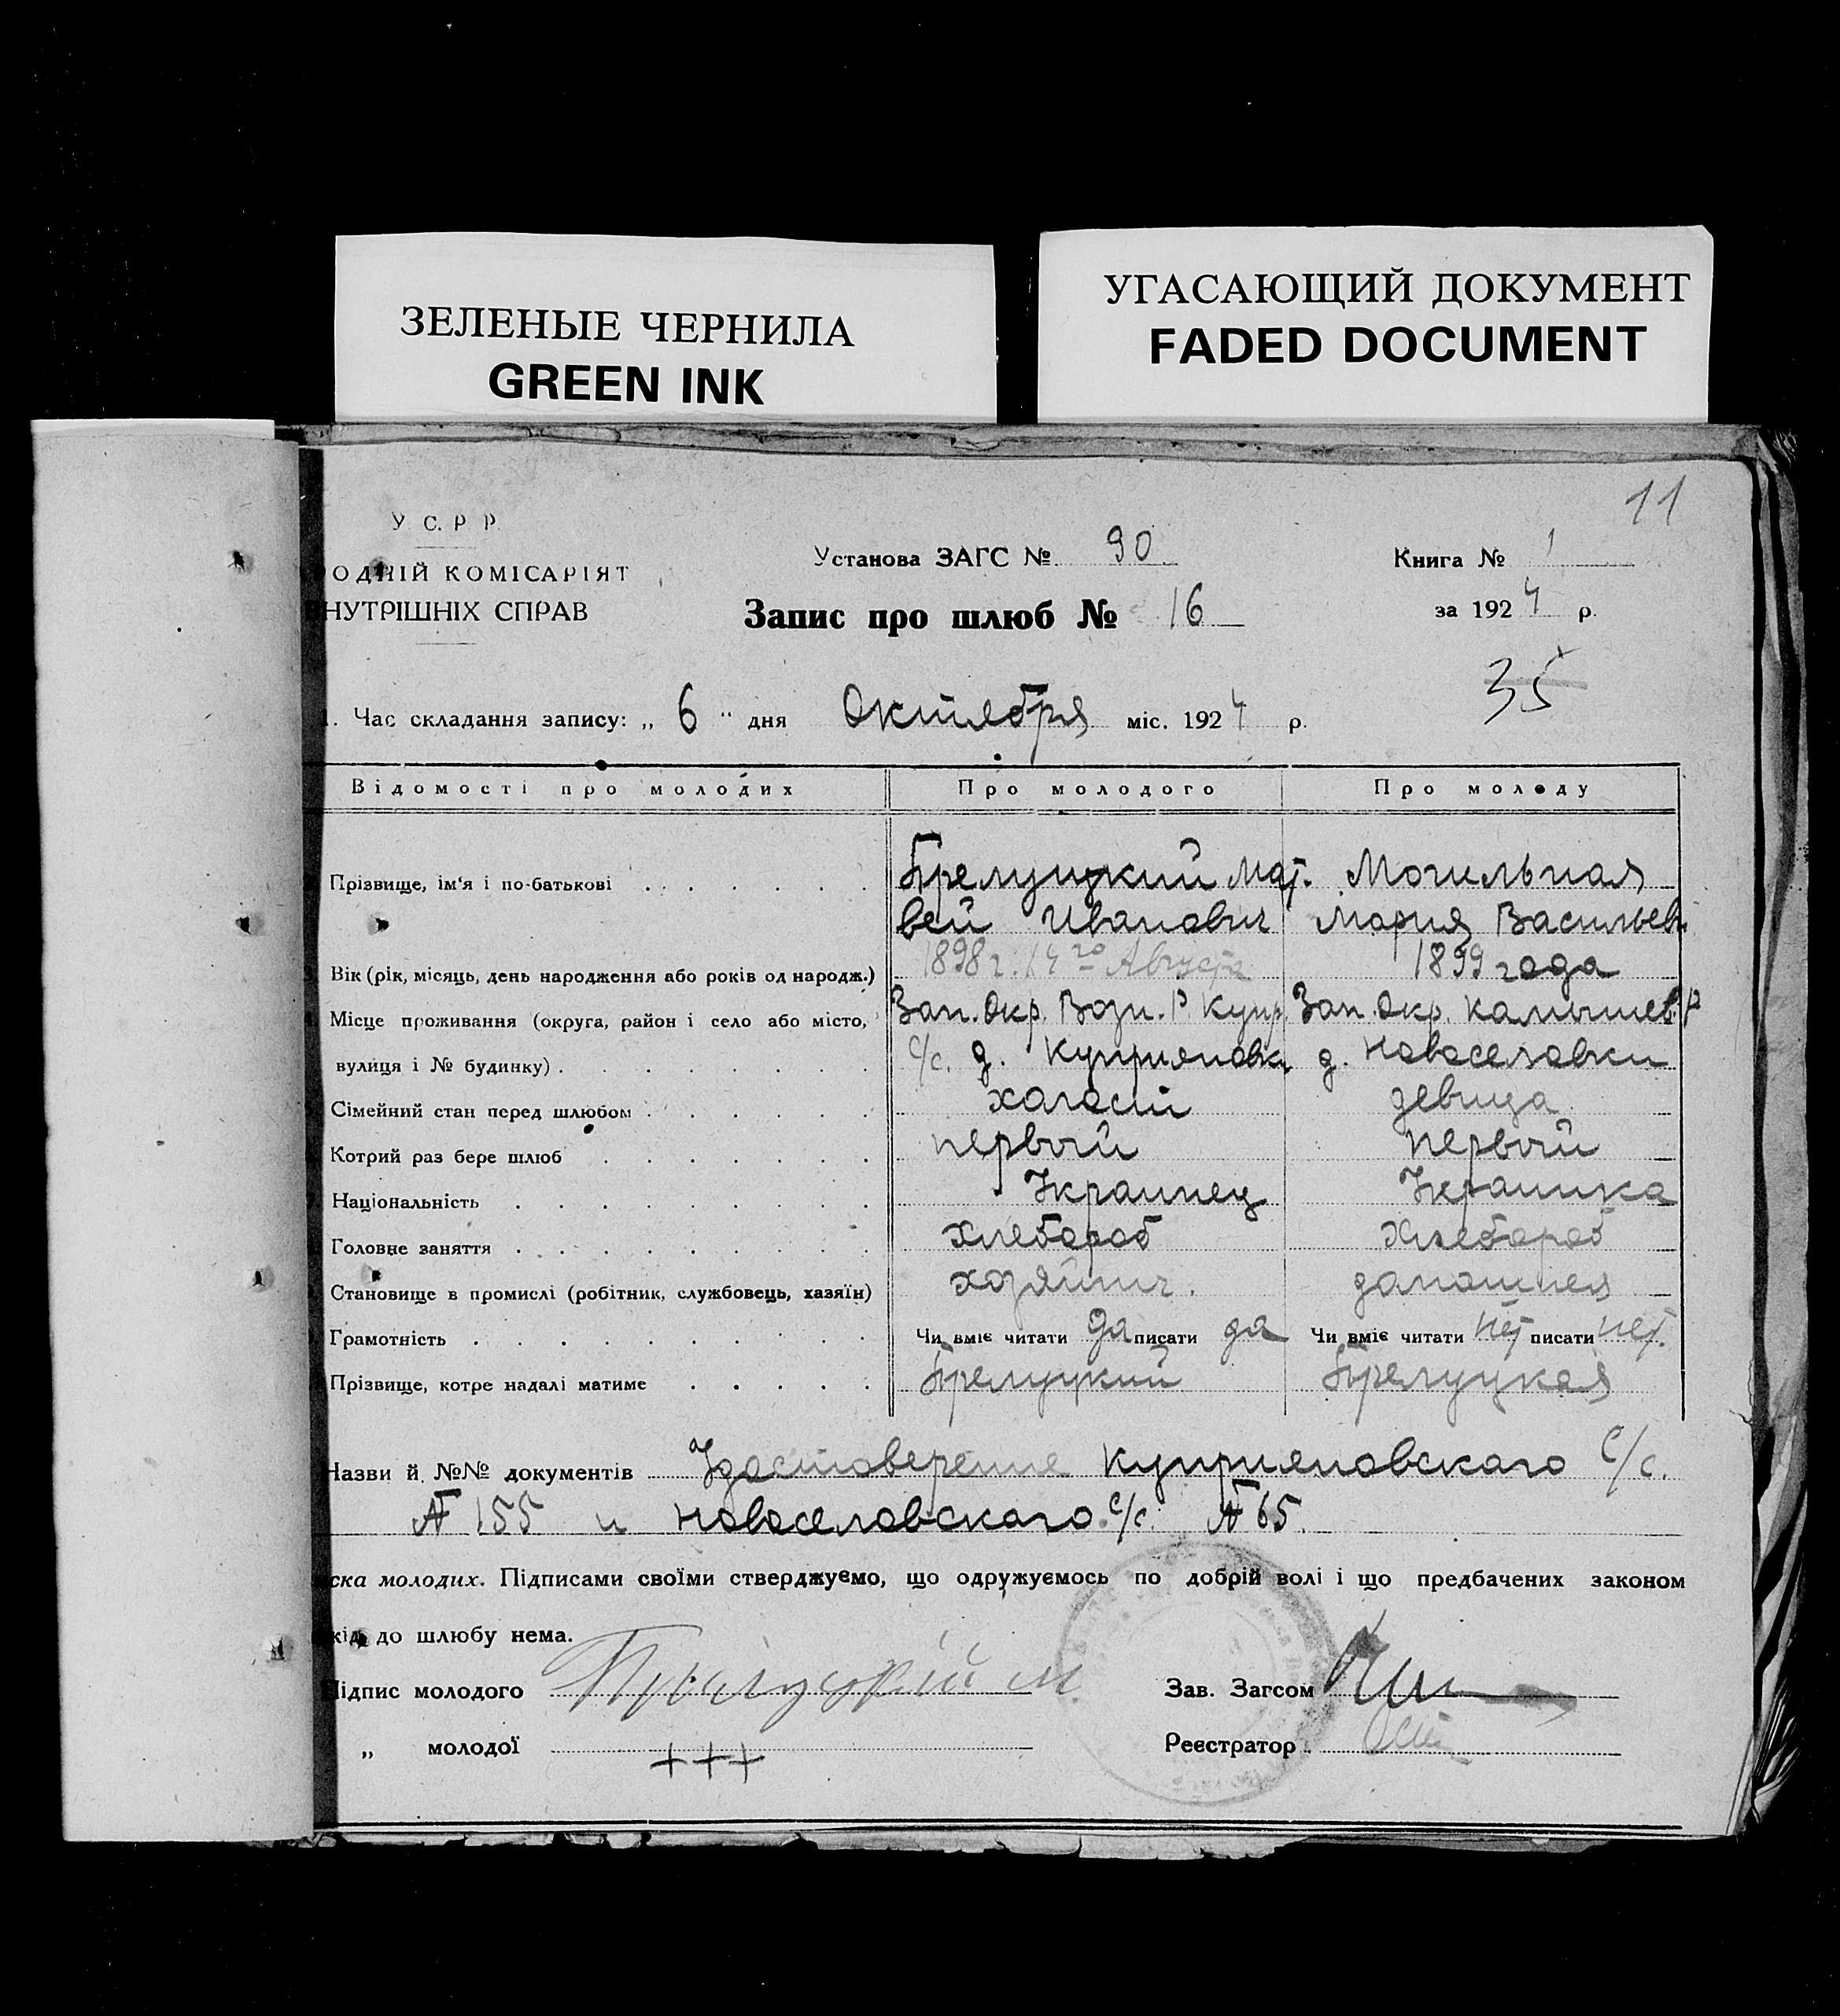 ЗЕЛЕНЫЕ ЧЕРНИЛА
GREEN INK
УГАСАЮЩИЙ ДОКУМЕНТ
FADED DOCUMENT
11
У. С. Р. Р.
ОДНІЙ КОМІСАРІЯТ
НУТРІШНІХ СПРАВ
Установа ЗАГС № 90
Книга № 1
Запис про шлюб № 16
за 1924 р.
35
1. Час складання запису: „ 6 “ дня Октября міс. 1924 р.
Відомості про молодих Про молодого Про молоду
Прізвище, ім'я і по-батькові Прелуцкий Мат- Могильная
вей Иванович Мария Васильев.
Вік (рік, місяць, день народження або років од народж.) 1898 г. 14го Августа 1899 года
Місце проживання (округа, район і село або місто, Зап. Окр. Возн. Р Купр. Зап. Окр. Камышев. Р
вулиця і № будинку) с/с. д. Куприяновки д. Новоселовки
Сімейний стан перед шлюбом холостй девица
Котрий раз бере шлюб первый первый
Національність Украинец Украинка
Головне заняття хлебороб хлебороб
Становище в промислі (робітник, службовець, хазяїн) хозяйнич. домашняя
Грамотність Чи вміє читати да писати да Чи вміє читати нет писати нет.
Прізвище, котре надалі матиме Прелуцкий Прелуцкая
Назви й №№ документів Удостоверение Куприяновскаго с/с.
№ 155 и Новоселовскаго с/с. № 65.
ска молодих. Підписами своїми стверджуємо, що одружуємось по добрій волі і що предбачених законом
кід до шлюбу нема.
Підпис молодого Прилуцкій М.
Зав. Загсом
„ молодої +++
Реєстратор